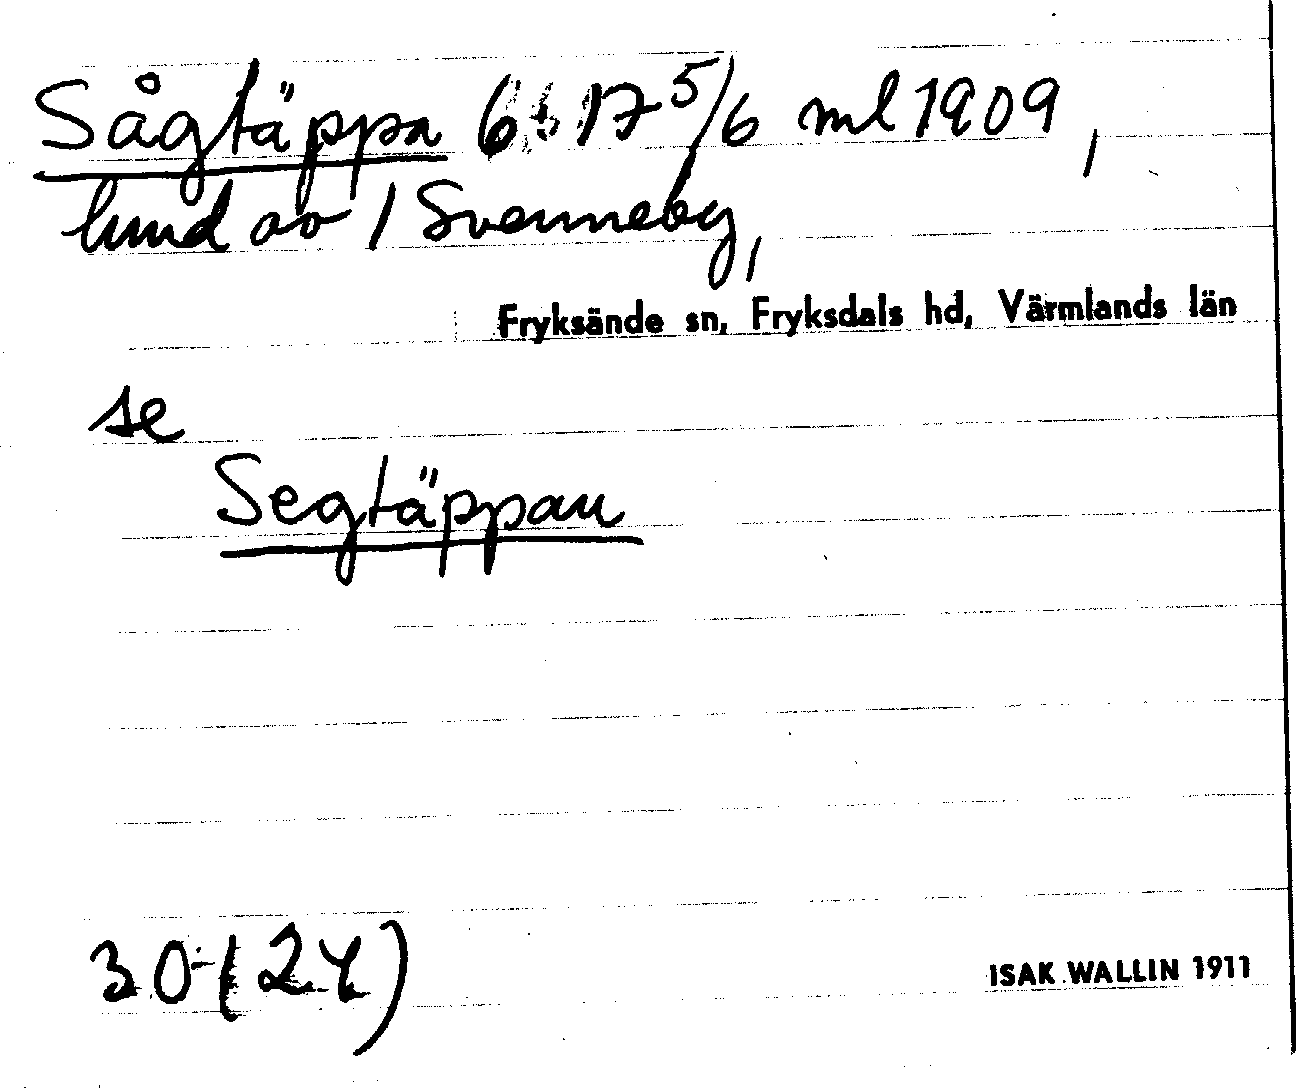 Sågtäppa 6 17 5/6 ml 1909,
lund av 1 Svenneby,
Fryksände sn, Fryksdals hd, Värmlands län
se
Segtäppan
30 (24)
ISAK WALLIN 1911